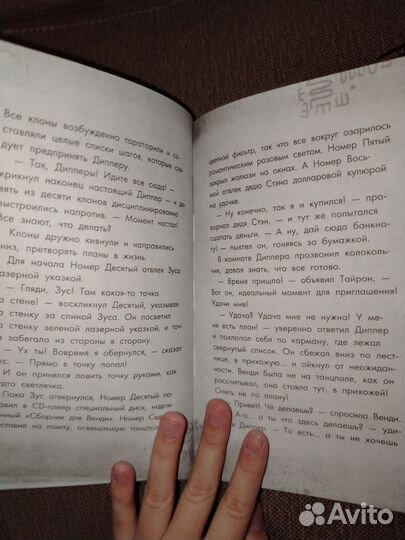 Все клоны возбужденно тараторили и со-
ставляли целые списки шагов, которые сле-
дует предпринять Дипперу.
— Так, Дипперы! Идите все сюда! —
крикнул наконец настоящий Диппер — и де-
вять из десяти клонов дисциплинированно
выстроились напротив. — Момент настал!
Все знают, что делать?
Клоны дружно кивнули и направились
вниз, претворять планы в жизнь.
Для начала Номер Десятый отвлек Зуса
лазерной указкой.
— Гляди, Зус! Там какая-то точка
на стене! — воскликнул Десятый, указывая
на стенку за спиной Зуса. Он посветил
на стенку зеленой лазерной указкой, и точ-
ка забегала из стороны в сторону.
— Ух ты! Вовремя я обернулся, — сказал
Зус. — Прямо в точку попал!
И он принялся ловить точку руками, как
будто светлячка.
Пока Зус отвернулся, Номер Десятый по-
ставил в CD-плеер специальный диск, надпи-
санный «Сборник для Венди». Номер Седь-
поставил на лампу, освещавшую танцпол,
цветной фильтр, так что все вокруг озарилось
романтическим розовым светом. Номер Пятый
закрыл жалюзи на окнах. А Номер Вось-
мой отвлек дядю Стэна долларовой купюрой
на удочке.
— Ну конечно, так я и купился! — про-
ворчал дядя Стэн, — и тут же попытался
сделать деньги. — А ну, дай сюда банкно-
ту! — пыхтел он, гоняясь за бумажкой.
В комнате Диппера прозвонил колоколь-
чик, давая знать, что все готово.
— Время пришло! — объявил Тайрон. —
Вот он, идеальный момент для приглашения!
Удачи мне!
— Удача? Удача мне не нужна! У меня
есть план! — уверенно ответил Диппер
и похлопал себя по карману, где лежал
свернутый список. Он сбежал вниз по лест-
нице, в прихожую... и ойкнул от неожидан-
ности. Венди была не на танцполе, как он
рассчитывал, она стояла тут, в прихожей!
Опять не по плану!
Привет! Чё делаешь? — спросила Венди.
А-а... а ты что здесь делаешь? — уди-
Диппер. — То есть... а ты не хочешь
Avito